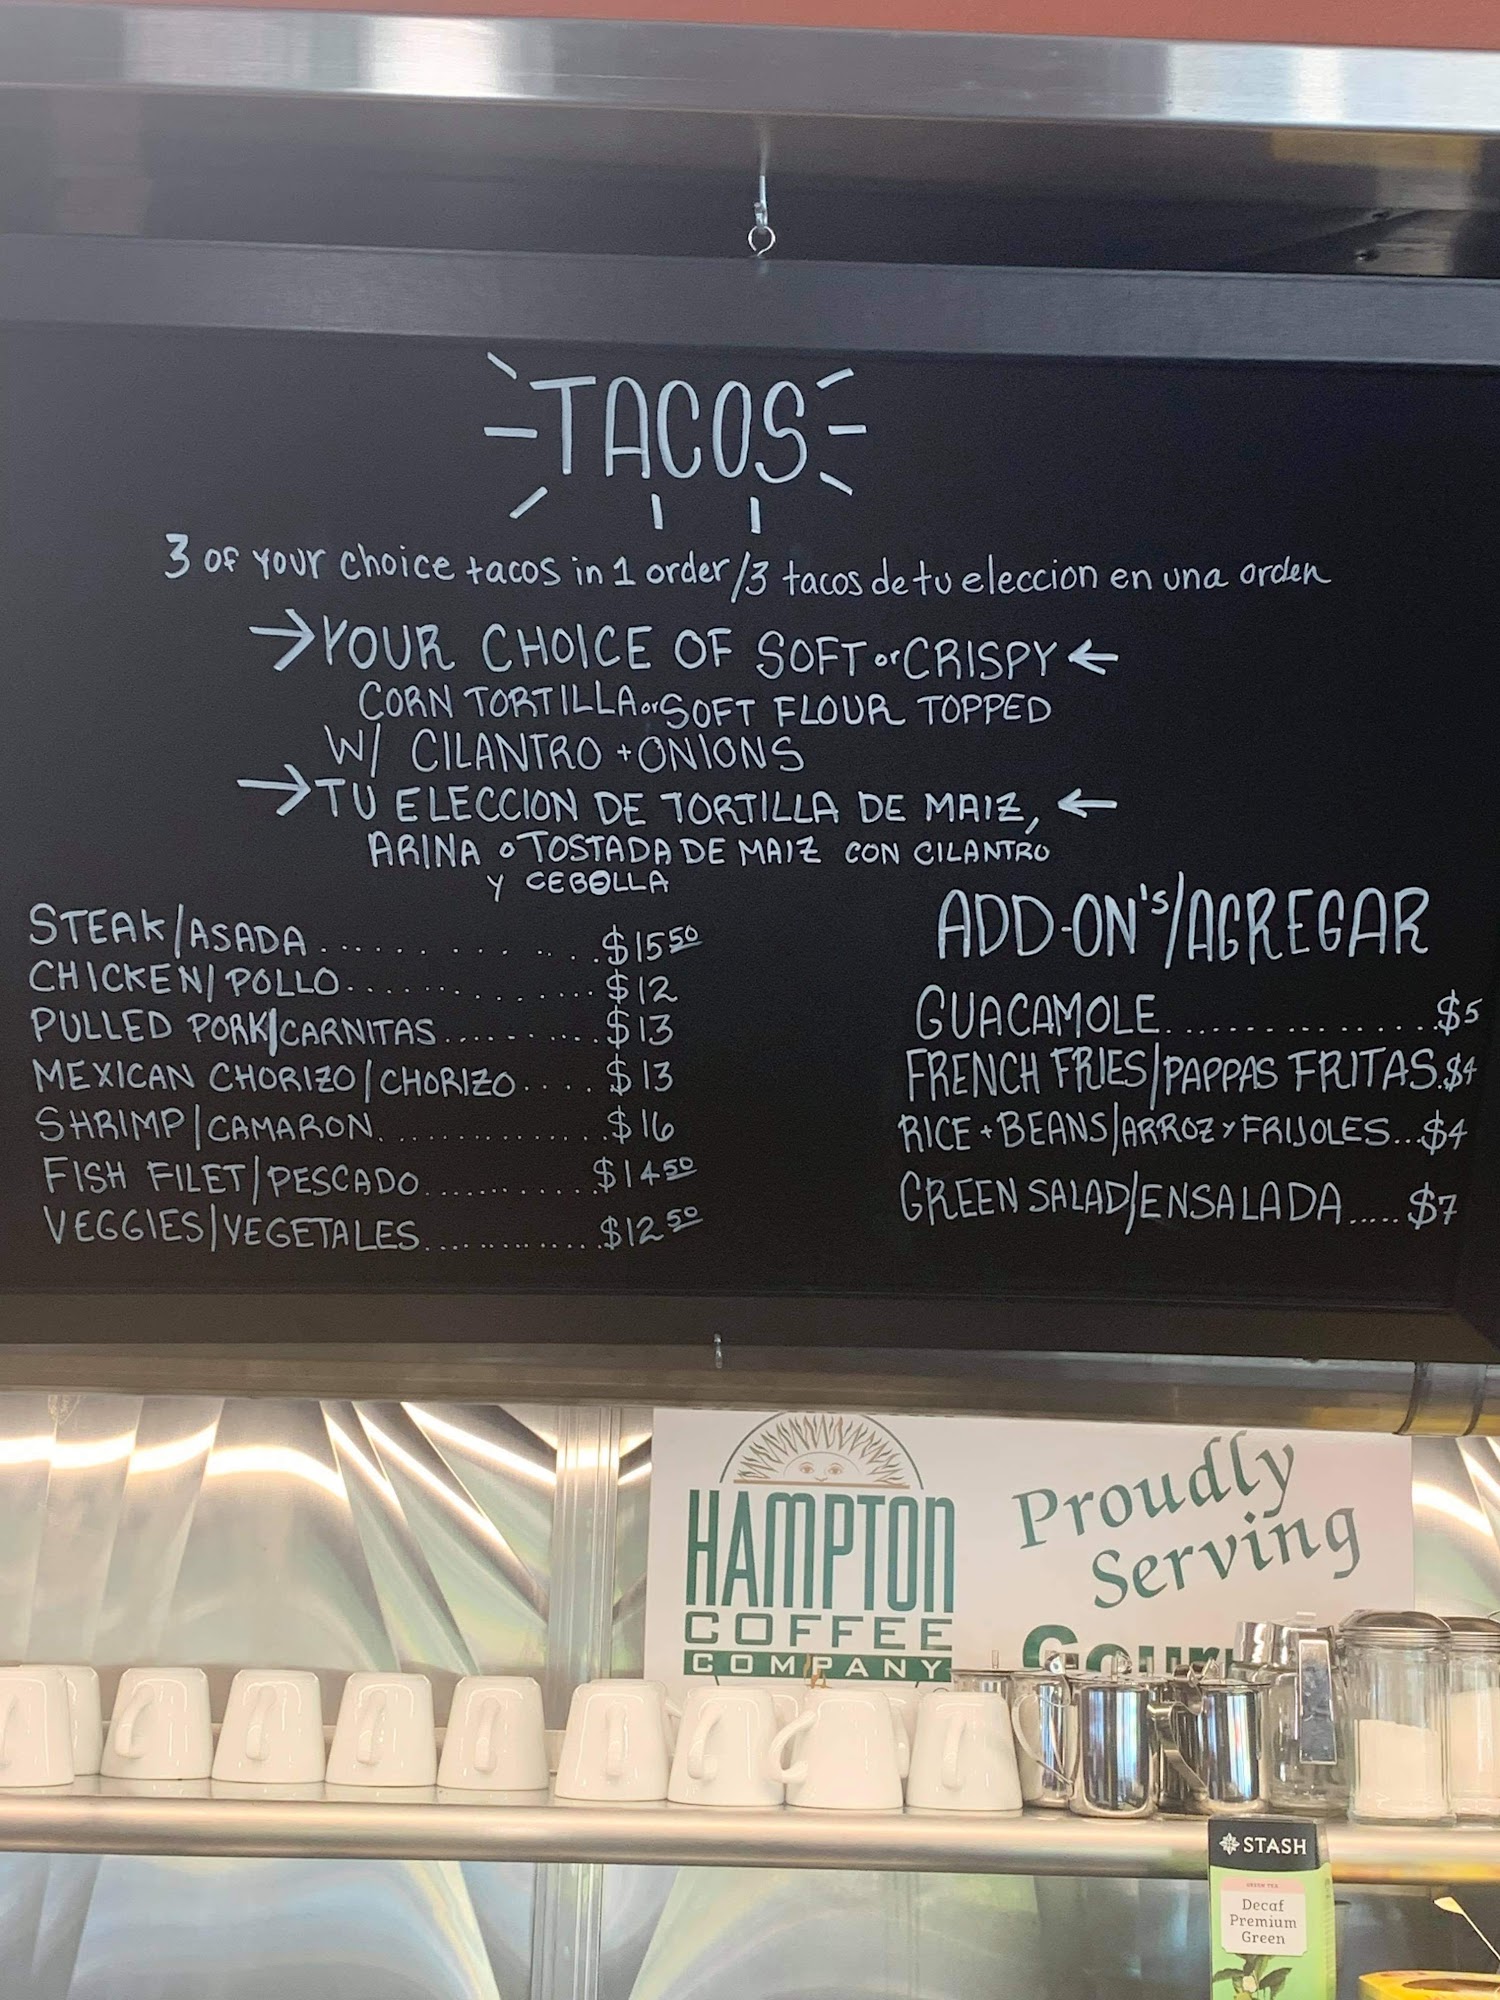 TACOS
3 of your choice tacos in 1 order/3 tacos de tu eleccion en una orden
→YOUR CHOICE OF SOFT or CRISPY←
CORN TORTILLA or SOFT FLOUR TOPPED
W/ CILANTRO + ONIONS
→TU ELECCION DE TORTILLA DE MAIZ,←
ARINA o TOSTADA DE MAIZ CON CILANTRO
Y CEBOLLA
STEAK/ASADA.............$15 50
CHICKEN/POLLO.............$12
PULLED PORK/CARNITAS..........$13
MEXICAN CHORIZO/CHORIZO....$13
SHRIMP/CAMARON...............$16
FISH FILET/PESCADO.............$14 50
VEGGIES/VEGETALES.............$12 50
ADD-ON's/AGREGAR
GUACAMOLE................$5
FRENCH FRIES/PAPPAS FRITAS.$4
RICE + BEANS/ARROZ Y FRIJOLES...$4
GREEN SALAD/ENSALADA.....$7
HAMPTON
COFFEE
COMPANY
Proudly
Serving
STASH
GREEN TEA
Decaf
Premium
Green